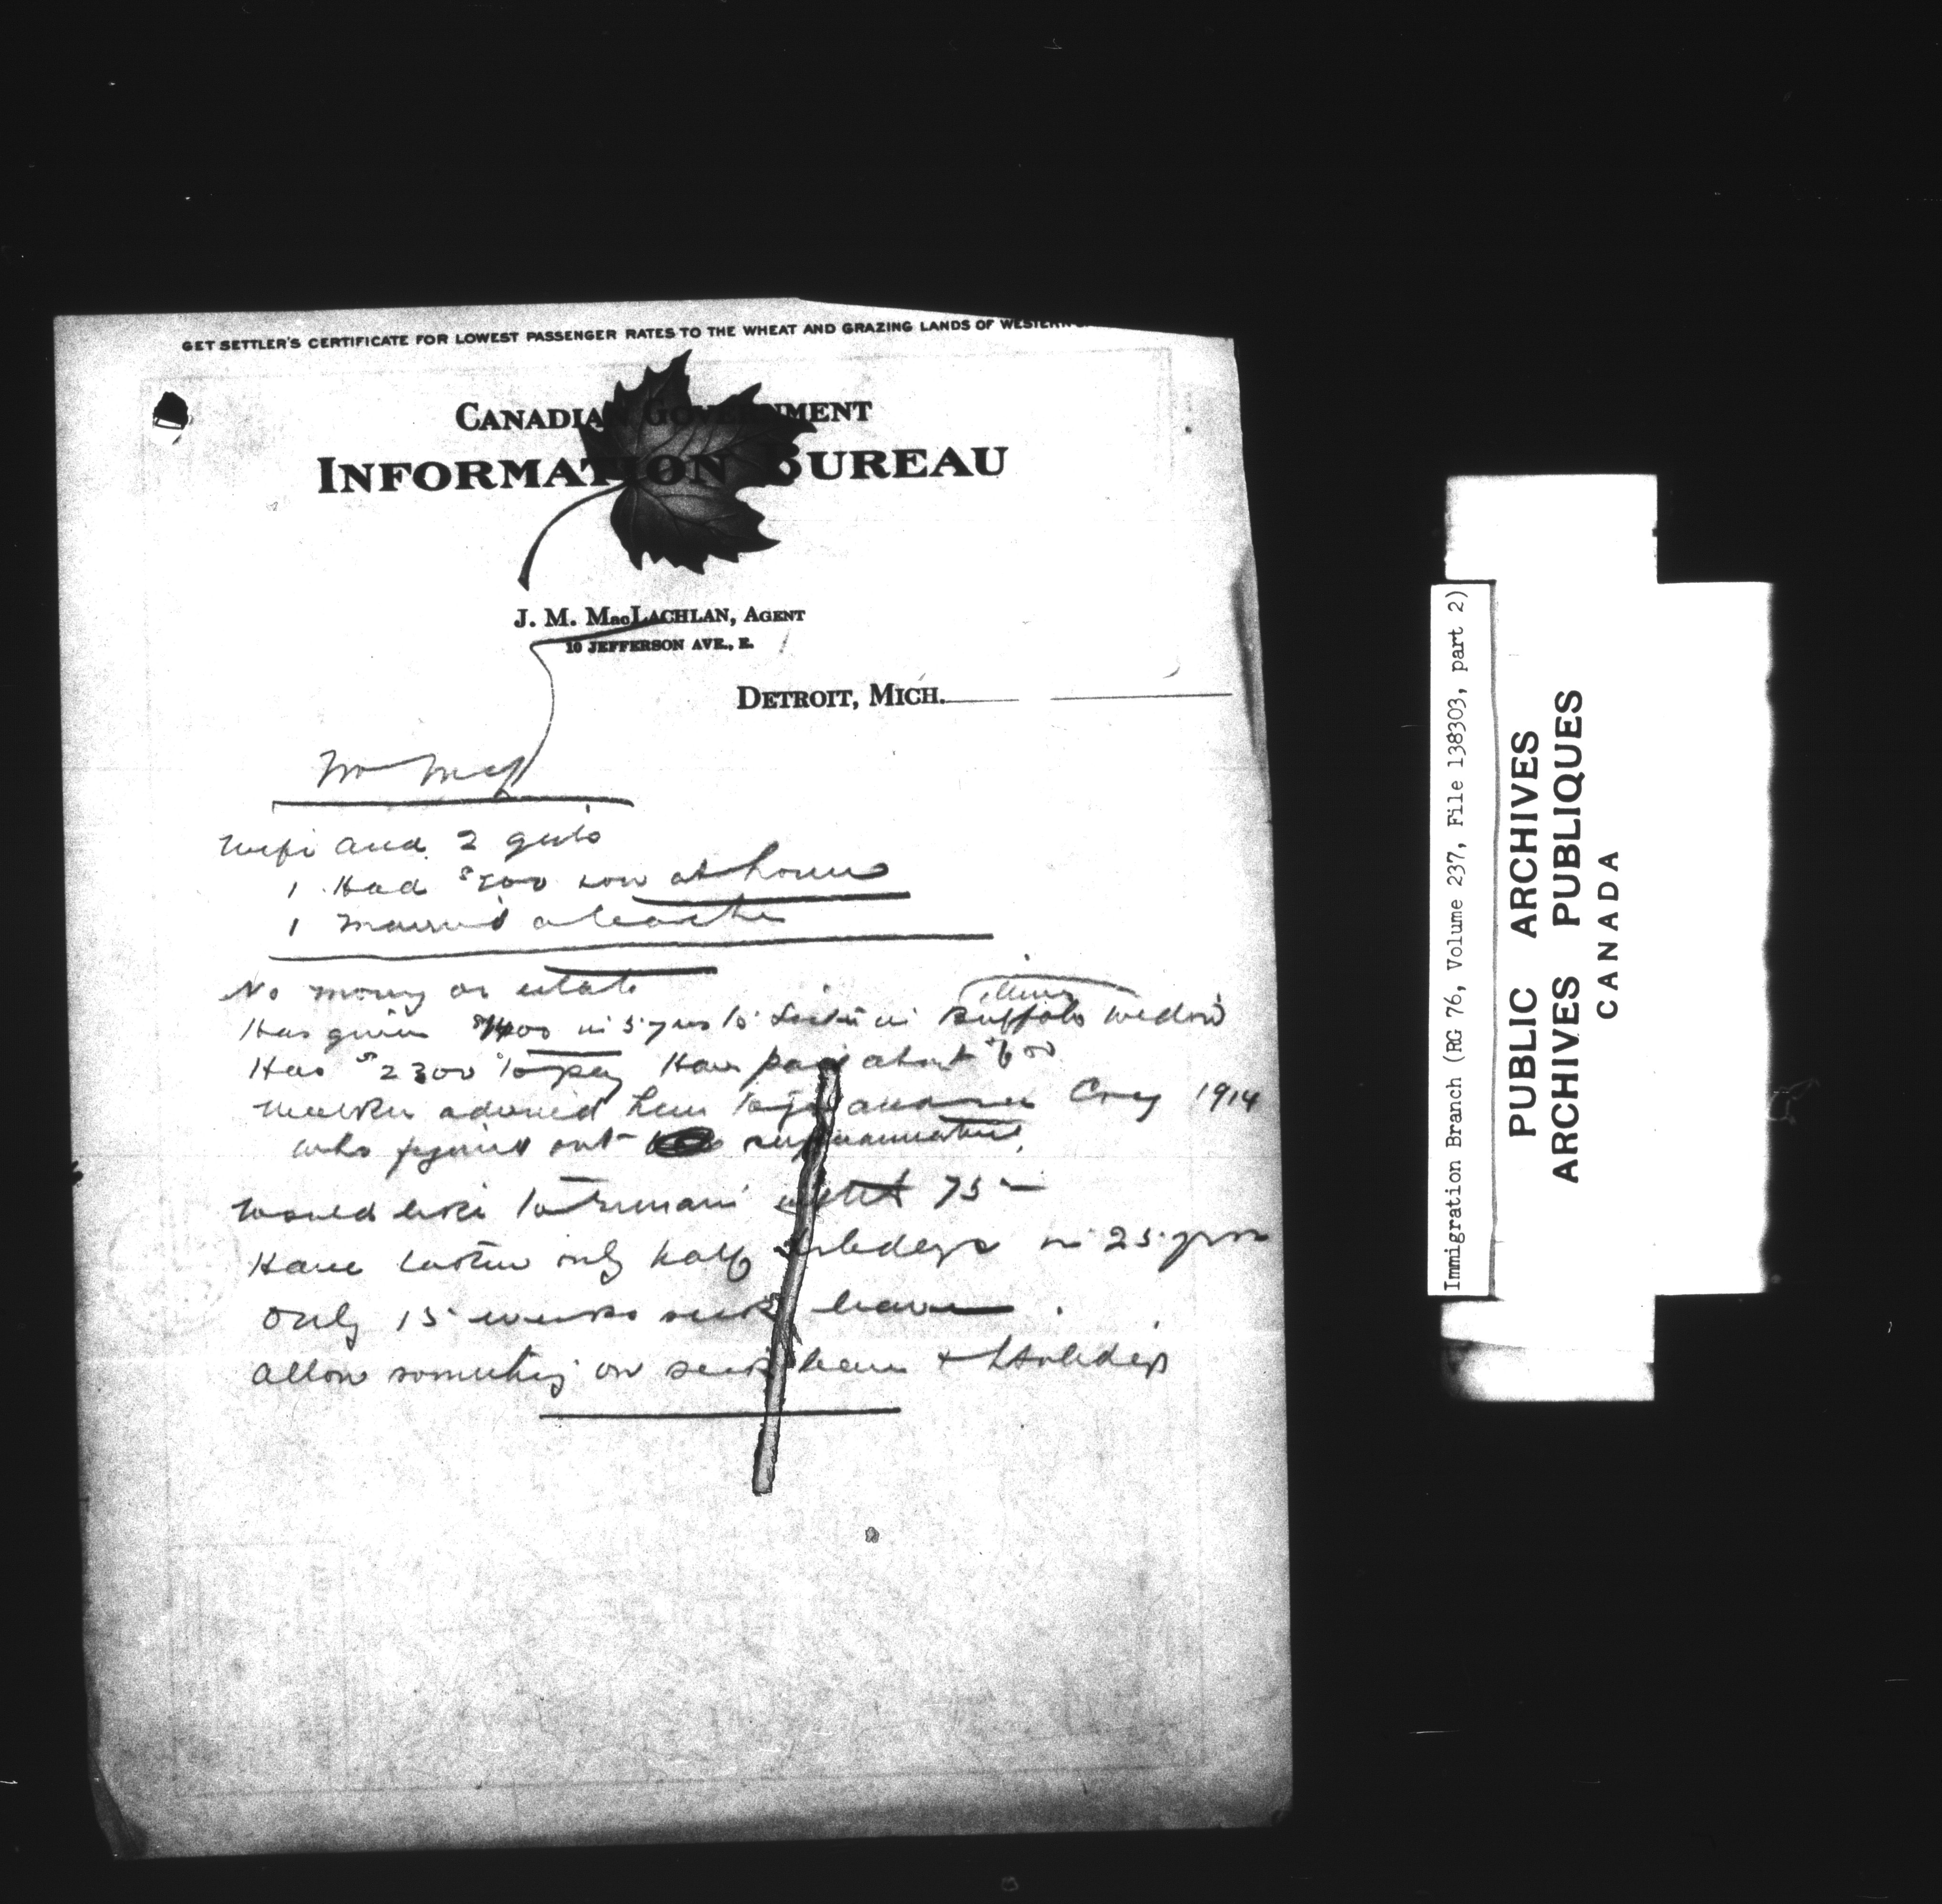 GET SETTLER'S CERTIFICATE FOR LOWEST PASSENGER RATES TO THE WHEAT AND GRAZING LANDS OF WESTERN
CANADIAN GOVERNMENT
INFORMATION BUREAU
J. M. MacLACHLAN, AGENT
10 JEFFERSON AVE., E.
DETROIT, MICH.
Wife and 2 girls
1 Had now at home
1 Married a
No money or estate
Has given in 5 yrs to Sister in Buffalo widow
Has $2300 to pay Have paid about
advised him to Cory 1914
who figured out superannuation
Would like to remain until 75
Have taken only half holidays in 25 yrs
Only 15 weeks sick leave.
Allow something on sick leave + Holidays
Immigration Branch (RG 76, Volume 237, File 138303, part 2)
PUBLIC ARCHIVES
ARCHIVES PUBLIQUES
CANADA